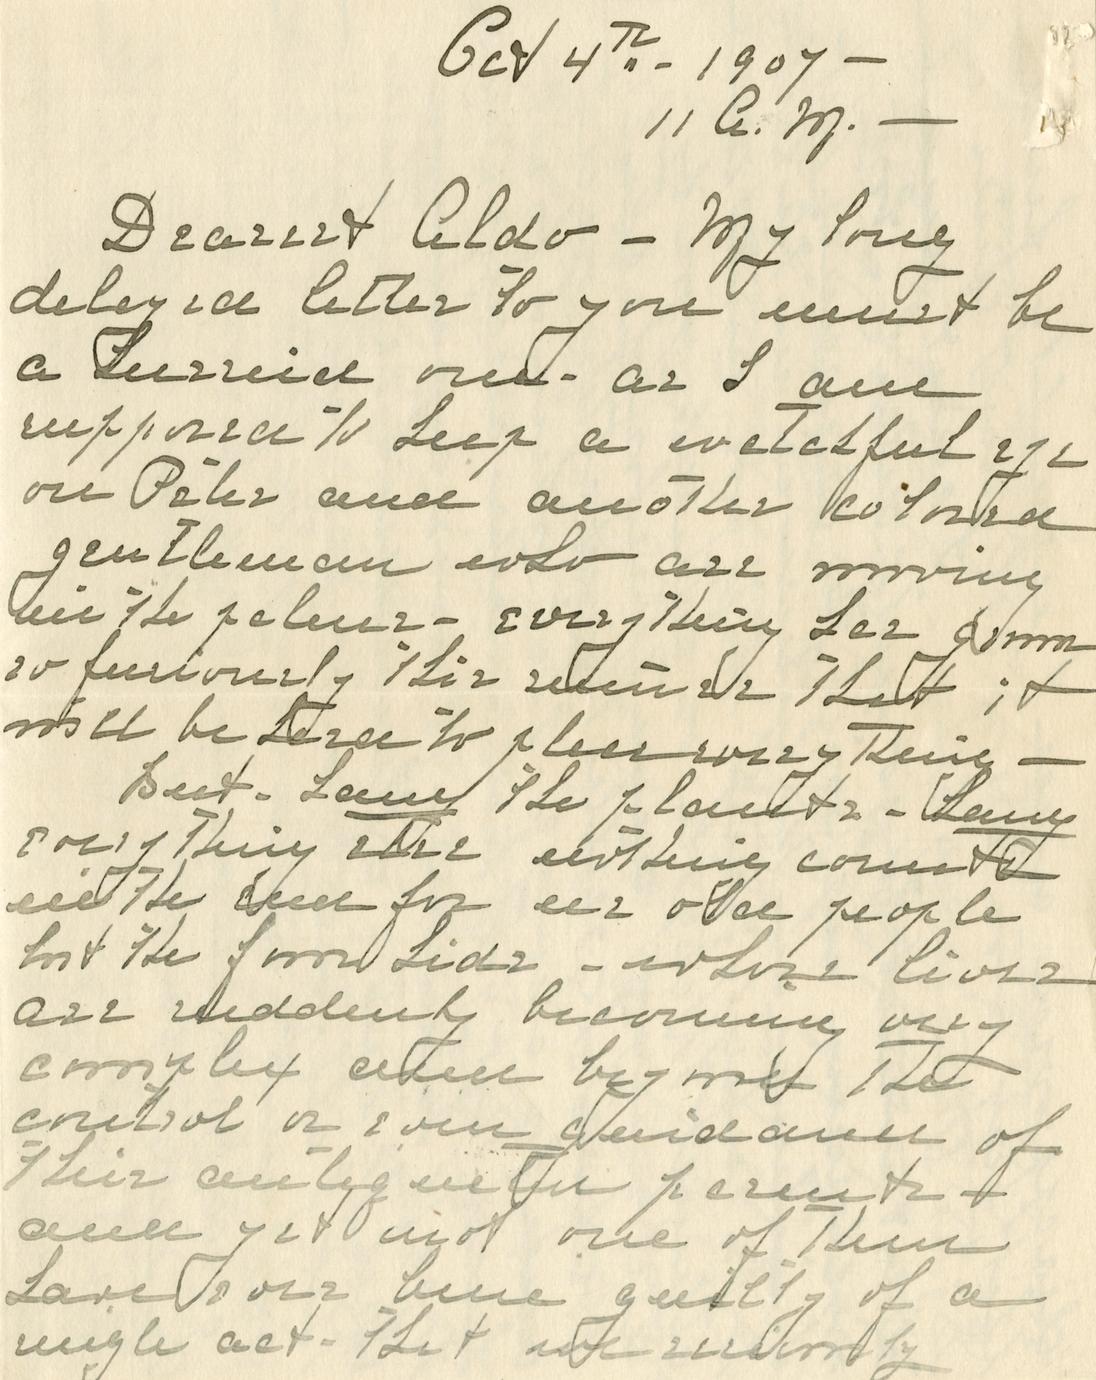 Oct 4th - 1907 -
11 A. M. -
Dearest Aldo - My long
delayed letter to you must be
a hurried one - as I am
supposed to keep a watchful eye
on Peter and another colored
gentleman who are moving
in the palms - everything has grown
so furiously this summer that it
will be hard to place everything -
But - hang the plants - hang
everything else nothing counts
in the end for us old people
but the grown kids - whose lives
are suddenly becoming very
complex and beyond the
control or even guidance of
their antiquated parents -
and yet not one of them
have ever been guilty of a
single act - that we seriously